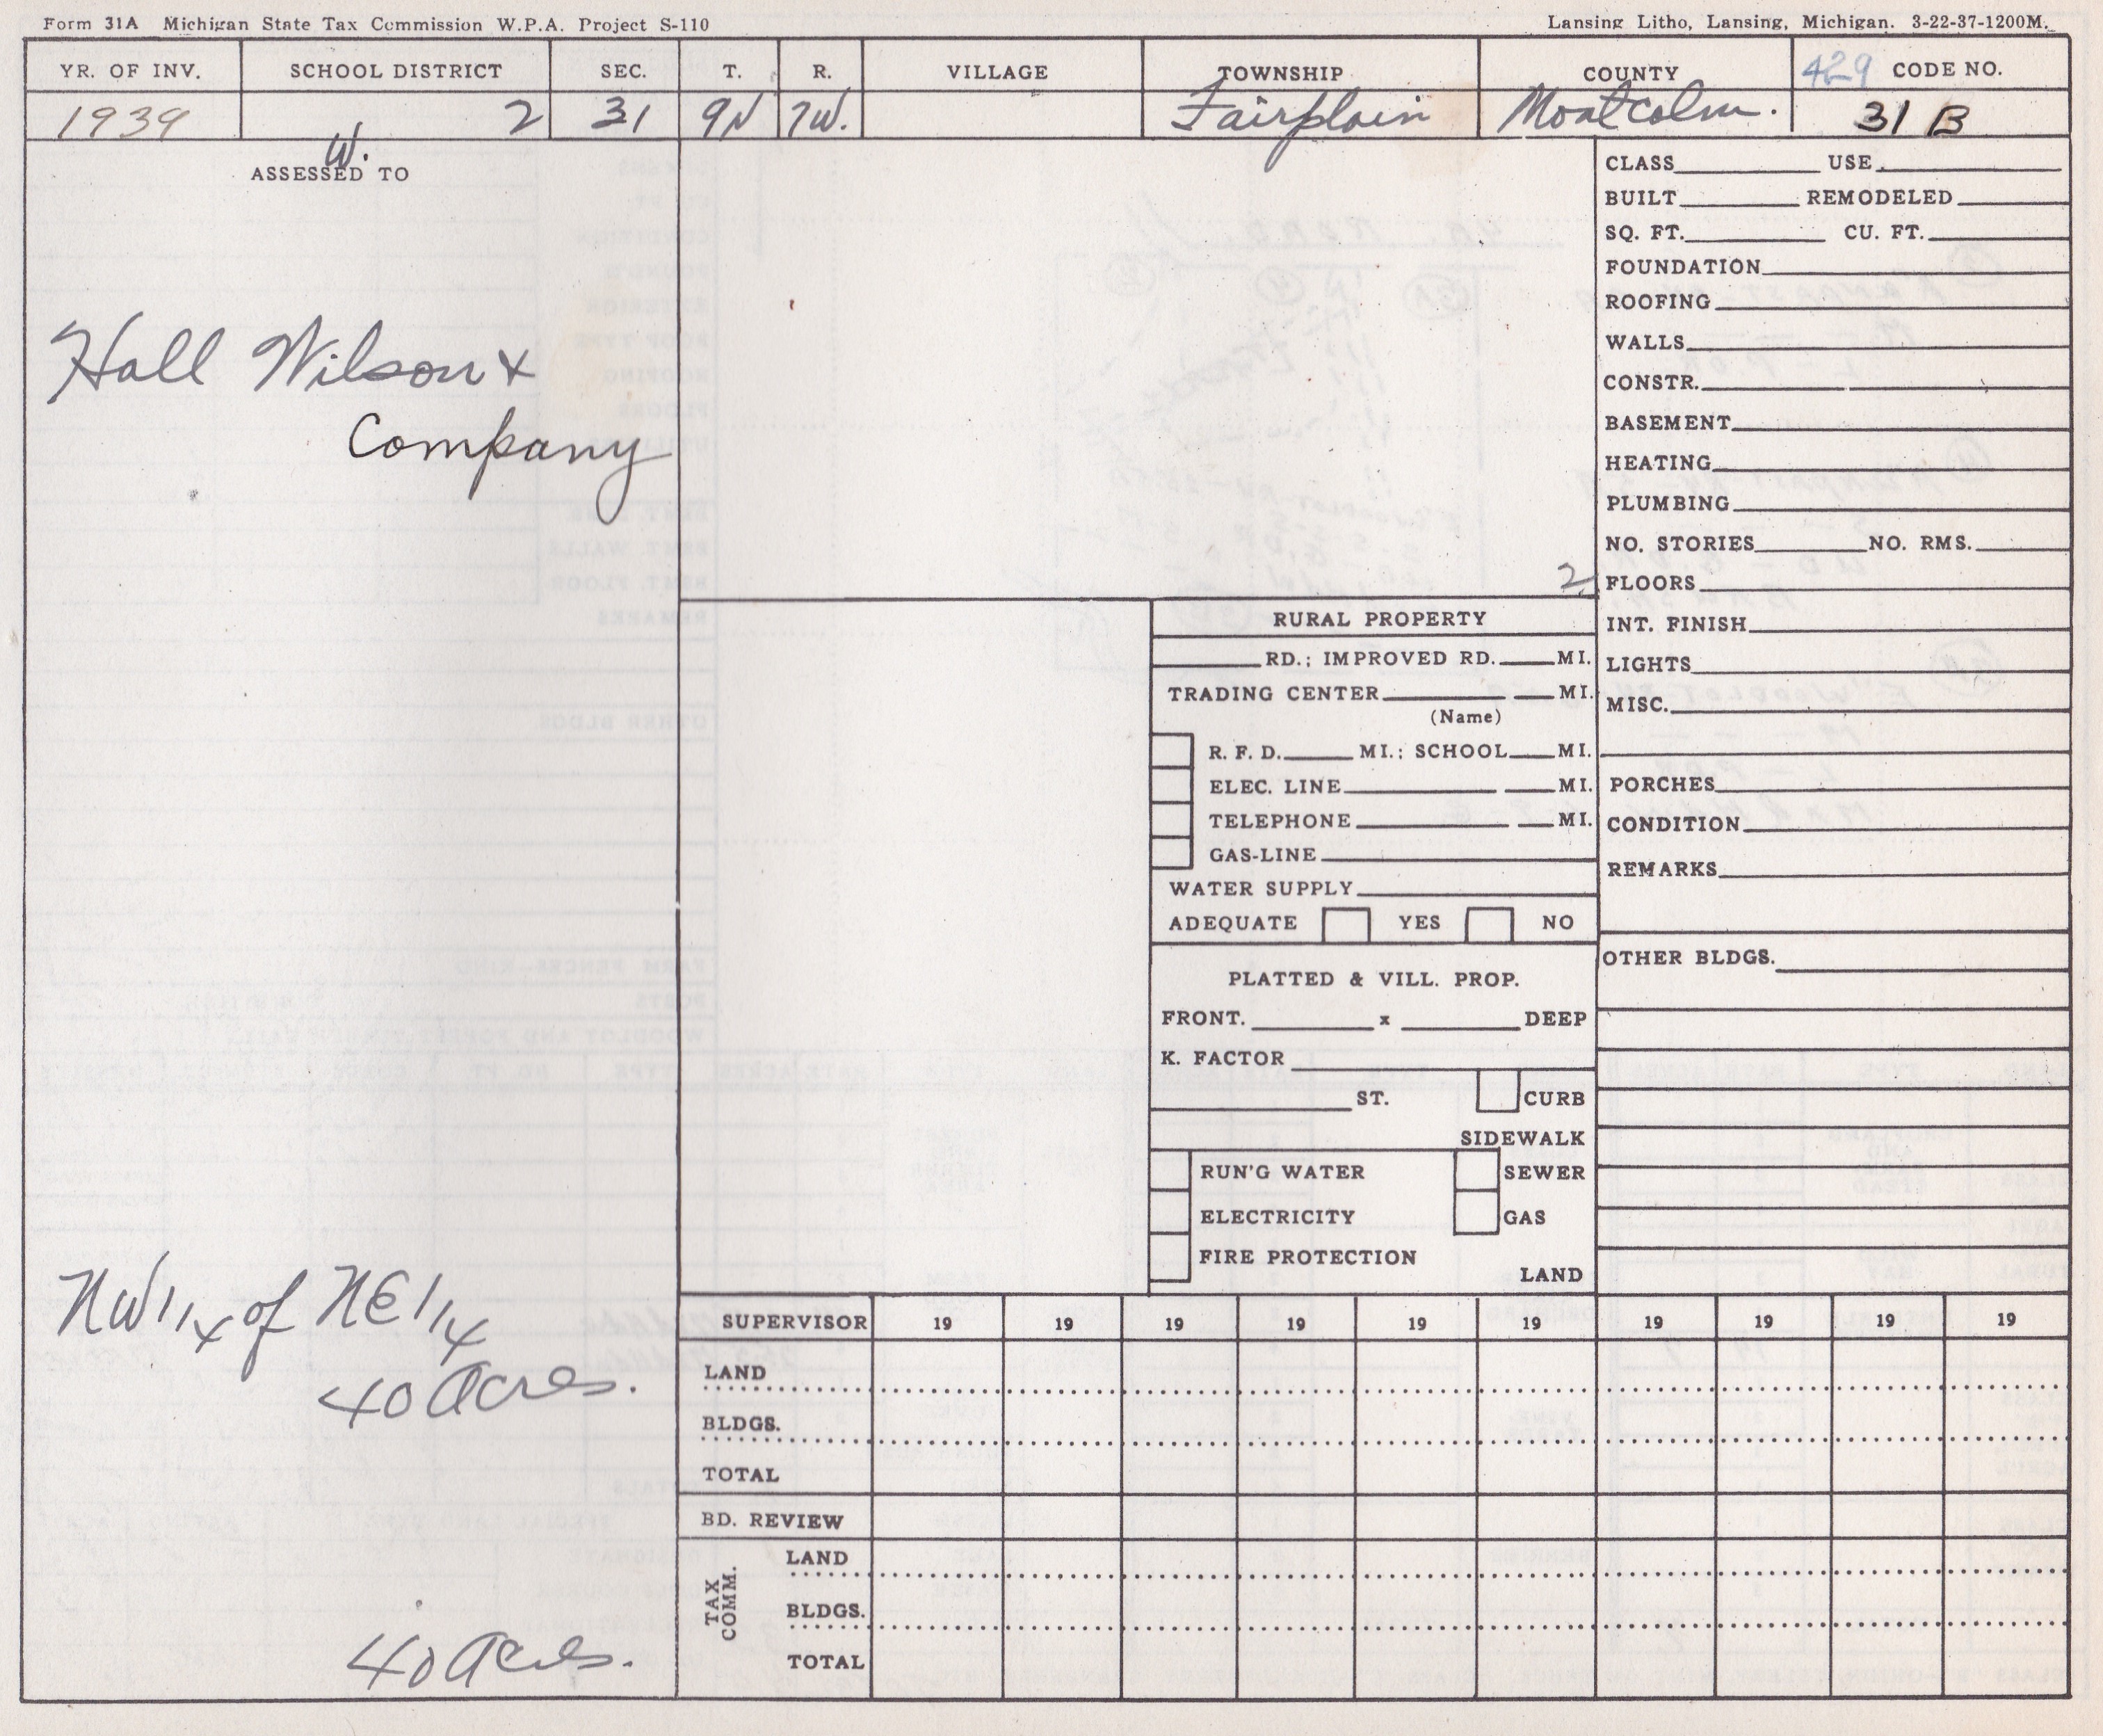 Form 31A Michigan State Tax Commission W.P.A. Project S-110
Lansing Litho, Lansing, Michigan. 3-22-37-1200M.
YR. OF INV. SCHOOL DISTRICT SEC. T. R. VILLAGE TOWNSHIP COUNTY 429 CODE NO.
1939 2 31 9N 7W. Fairplain Montcalm. 31 B
W.
ASSESSED TO
Hall Wilson &
Company
NW 1/4 of NE 1/4
40 Acres.
40 Acres.
CLASS USE
BUILT REMODELED
SQ. FT. CU. FT.
FOUNDATION
ROOFING
WALLS
CONSTR.
BASEMENT
HEATING
PLUMBING
NO. STORIES NO. RMS.
2 FLOORS
INT. FINISH
LIGHTS
MISC.
PORCHES
CONDITION
REMARKS
OTHER BLDGS.
RURAL PROPERTY
RD.; IMPROVED RD. MI.
TRADING CENTER MI.
(Name)
R. F. D. MI.; SCHOOL MI.
ELEC. LINE MI.
TELEPHONE MI.
GAS-LINE
WATER SUPPLY
ADEQUATE YES NO
PLATTED & VILL. PROP.
FRONT. x DEEP
K. FACTOR
ST. CURB
SIDEWALK
RUN'G WATER SEWER
ELECTRICITY GAS
FIRE PROTECTION
LAND
SUPERVISOR 19 19 19 19 19 19 19 19 19 19
LAND
BLDGS.
TOTAL
BD. REVIEW
TAX COMM.
LAND
BLDGS.
TOTAL